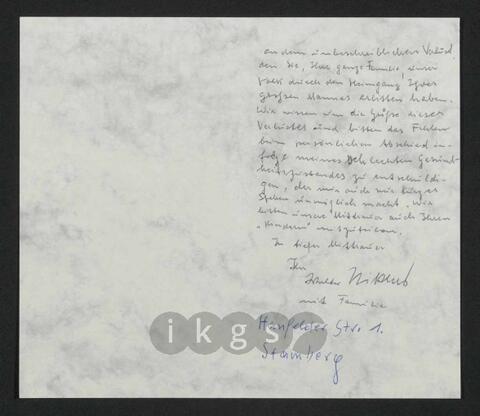 an dem unbeschreiblichen Verlust
den Sie, Ihre ganze Familie, unser
Volk durch den Heimgang Ihres
großen Mannes erlitten haben.
Wir wissen um die Größe dieses
Verlustes und bitten das Fehlen
beim persönlichen Abschied in-
folge meines schlechten Gesund-
heitszustandes zu entschuldi-
gen, der mir auch nur kurzes
Stehen unmöglich macht. Wir
bitten unsere Mittrauer auch Ihren
„Kindern" 
In tiefer Mittrauer
Ihr
mit Familie
ikgs
Hanfelder Str. 1.
Starnberg